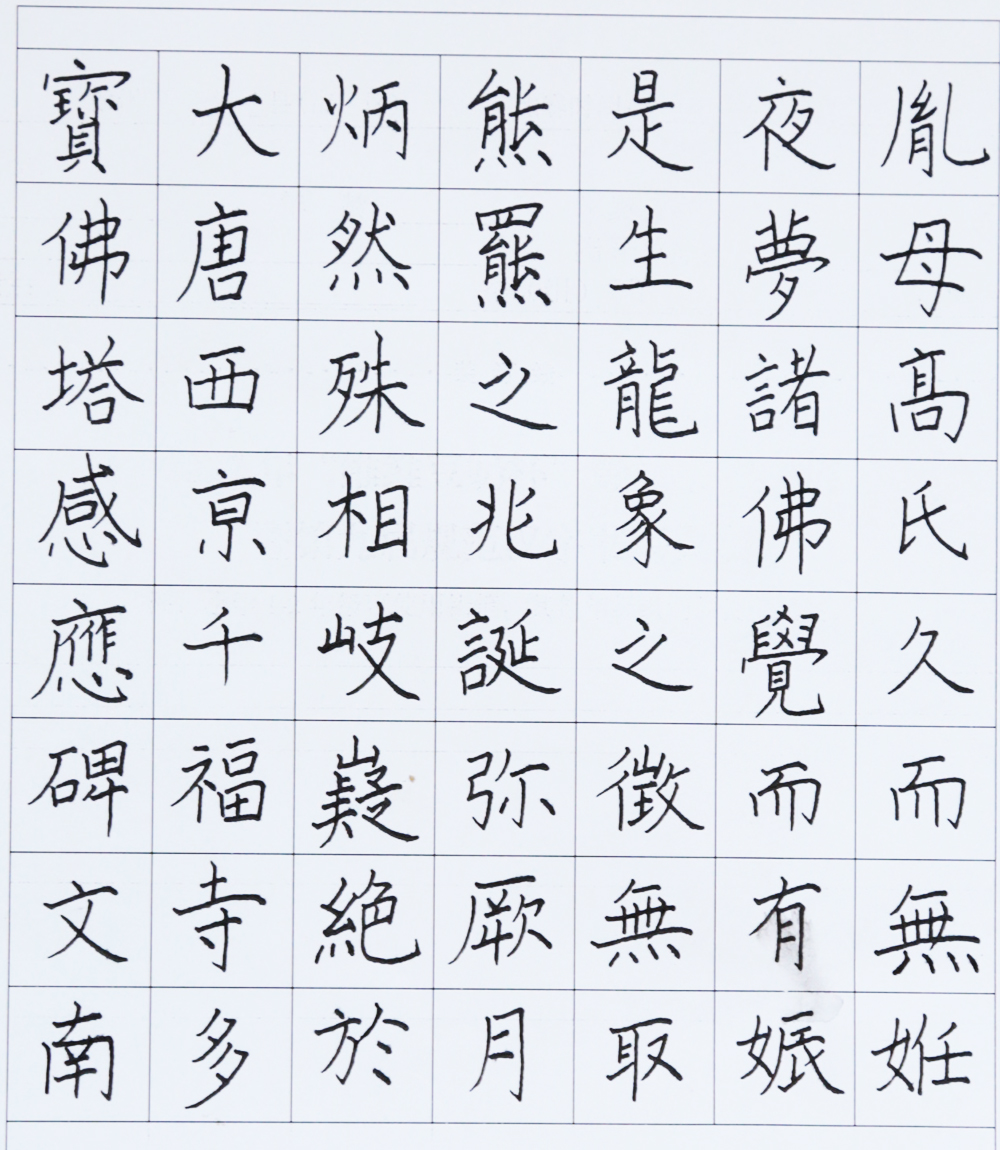 胤母髙氏久而無姙
夜夢諸佛覺而有娠
是生龍象之徵無取
熊羆之兆誕弥厥月
炳然殊相岐嶷絶於
大唐西亰千福寺多
寶佛塔感應碑文南